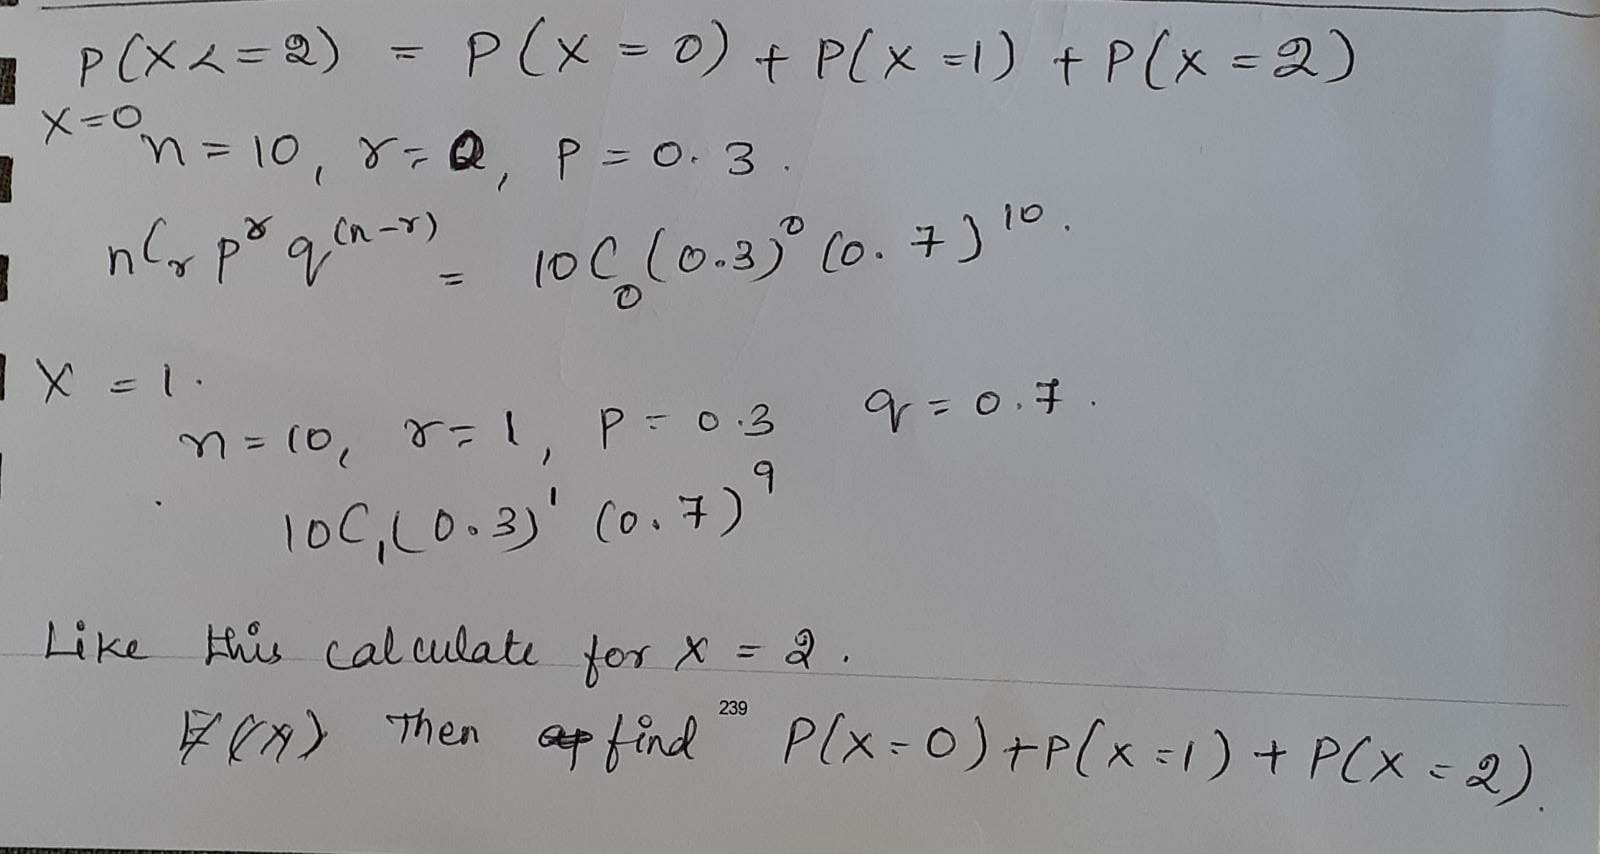 P(X <= 2) = P(X = 0) + P(X = 1) + P(X = 2)
X = 0
n = 10, r = 0, P = 0.3.
nCr p^r q^(n-r) = 10C0 (0.3)^0 (0.7)^10.
X = 1.
n = 10, r = 1, P = 0.3 q = 0.7.
10C1 (0.3)^1 (0.7)^9
Like this calculate for X = 2.
Then find 239 P(X = 0) + P(X = 1) + P(X = 2).